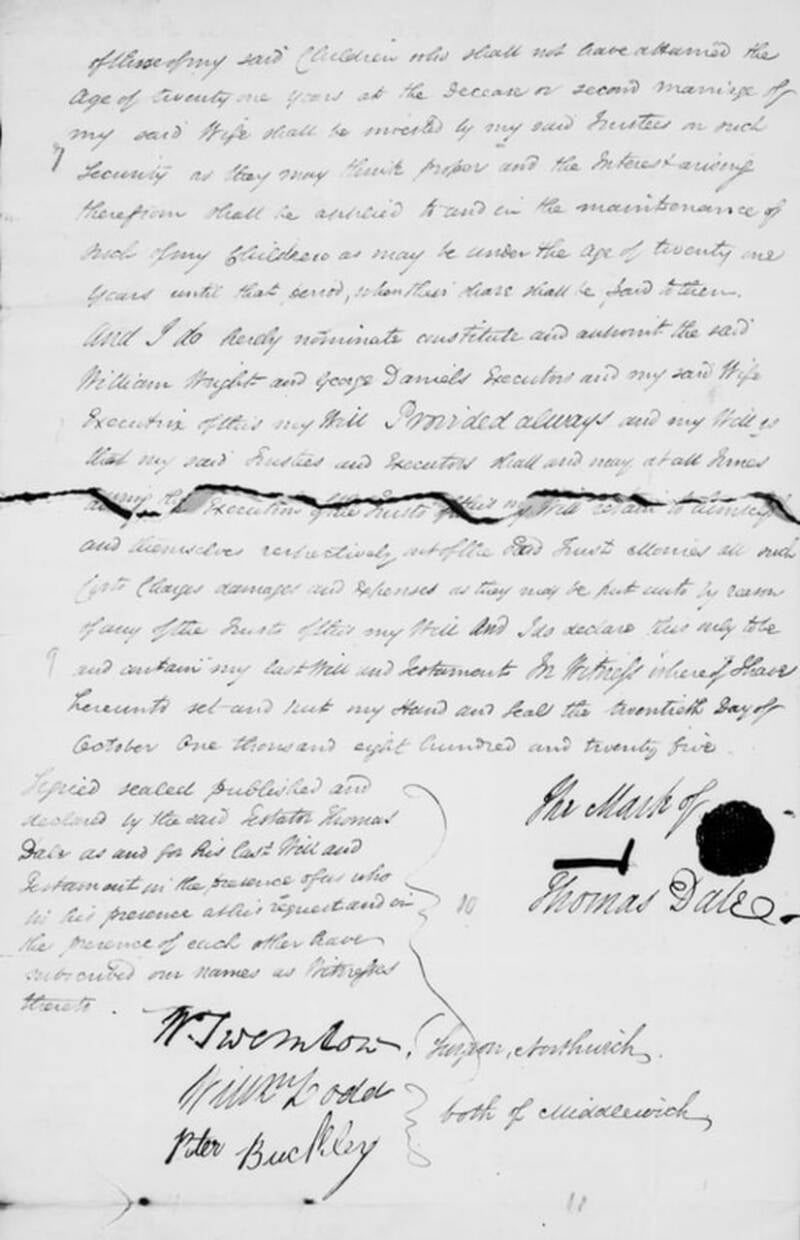 of those of my said Children who shall not have attained the
Age of twenty one years at the Decease or second marriage of
my said Wife shall be invested by my said Trustees on such
Security as they may think proper and the Interest arising
therefrom shall be applied to and in the maintenance of
such of my Children as may be under the Age of twenty one
years until that period, when their share shall be paid to them.
And I do hereby nominate constitute and appoint the said
William Wright and George Daniels Executors and my said Wife
Executrix of this my Will Provided always and my Will is
that my said Trustees and Executors shall and may at all Times
during the Execution of the Trusts of this my Will retain to himself
and themselves respectively out of the said Trust Monies all such
Costs Charges damages and expenses as they may be put unto by reason
of any of the Trusts of this my Will And I do declare this only to be
and contain my last Will and Testament In Witness whereof I have
hereunto set and put my Hand and Seal the twentieth Day of
October One thousand eight hundred and twenty five
Signed sealed published and
declared by the said Testator Thomas
Dale as and for his last Will and
Testament in the presence of us who
in his presence at his request and in
the presence of each other have
subscribed our names as Witnesses
thereto.
The Mark of
Thomas Dale
Wm. Twemlow, Surgeon, Northwich.
Willm Dodd
Peter Buckley
both of Middlewich